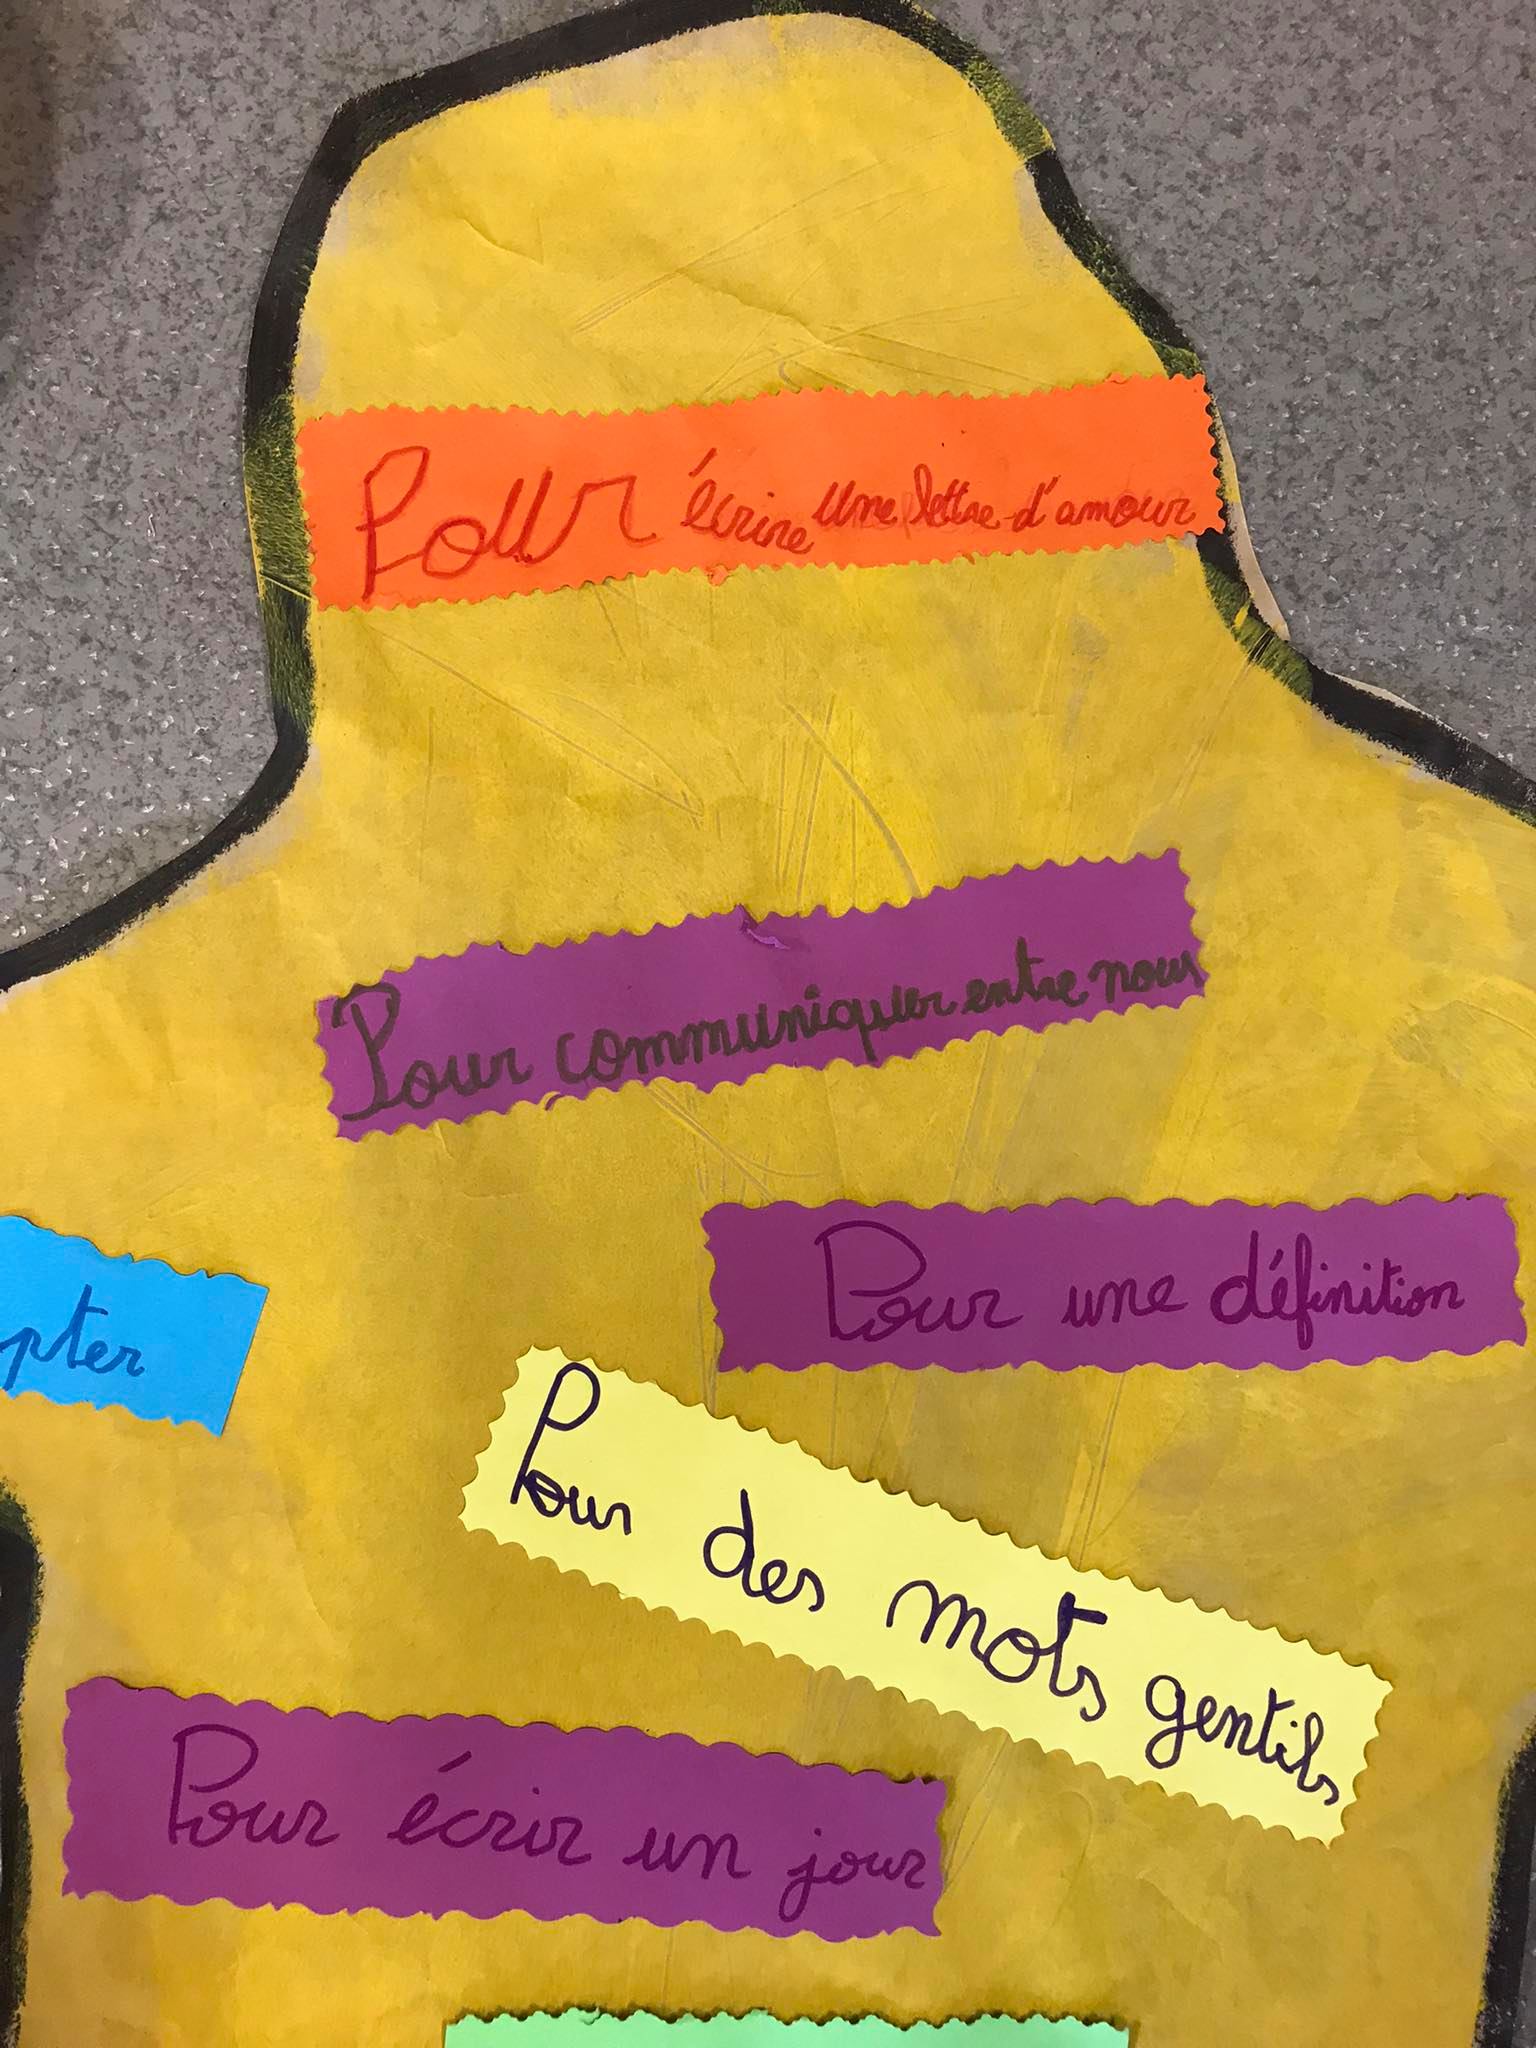 Pour écrire une lettre d'amour
Pour communiquer entre nous
Pour une définition
pter
Pour des mots gentils
Pour écrir un jour